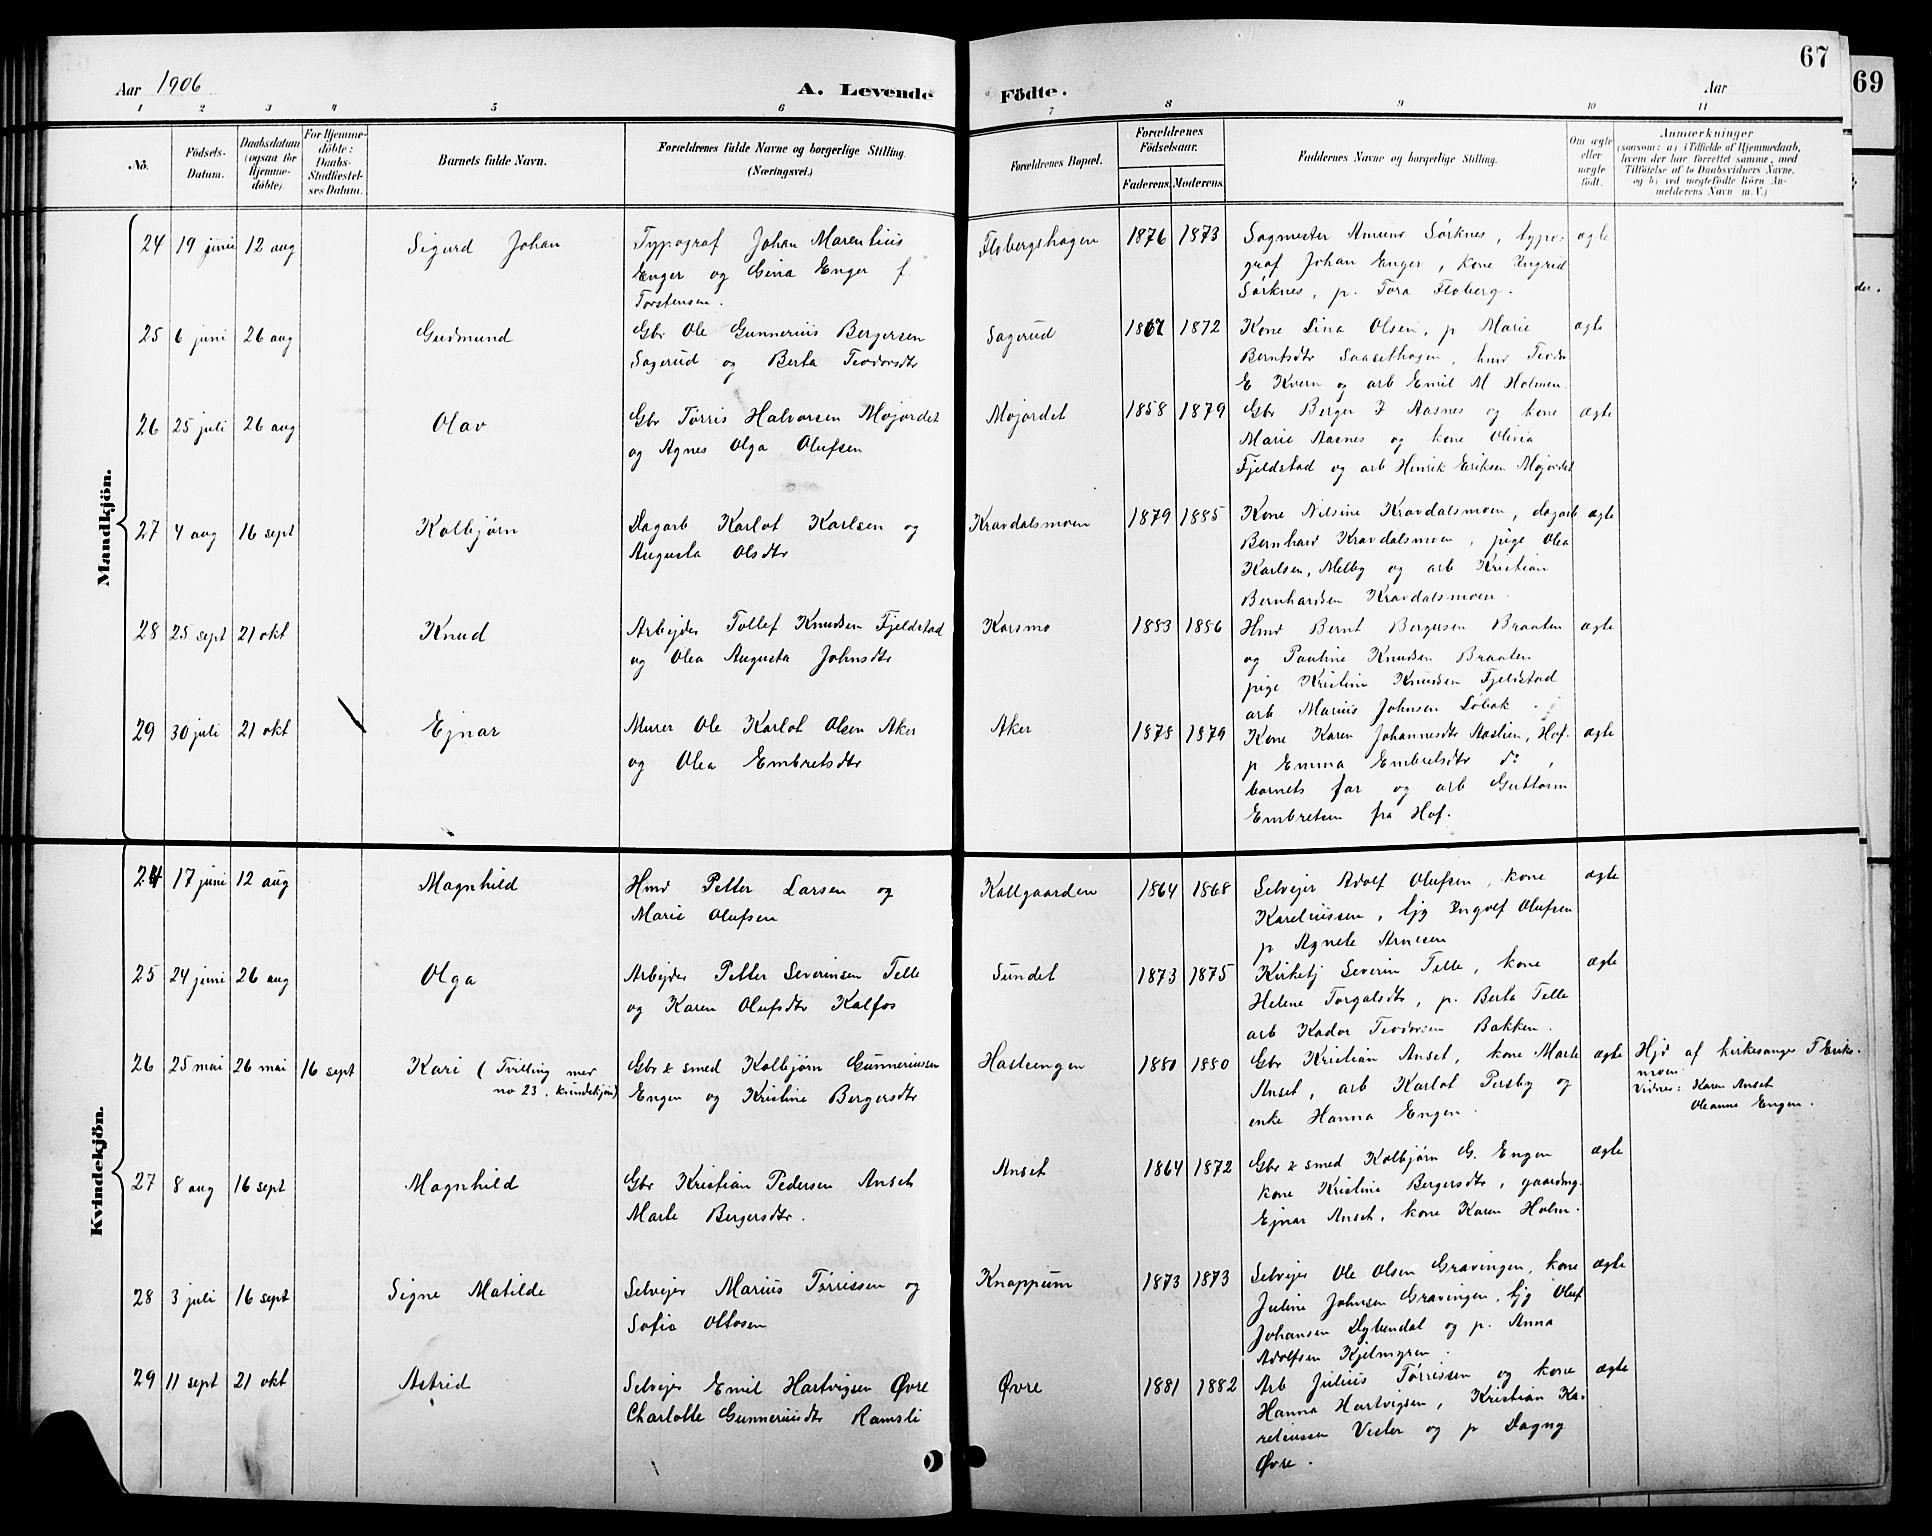 67
69
Aar 1906
A. Levende
Födte.
Aar
1 2 3 4 5 6 7 8 9 10 11
No.
Födsels-
Datum.
Daabsdatum
(ogsaa for
Hjemme-
döbte).
For Hjemme-
döbte:
Daabs-
Stadfæstel-
ses Datum.
Barnets fulde Navn.
Forældrenes fulde Navne og borgerlige Stilling
(Næringsvei.)
Forældrenes Bopæl.
Forældrenes
Födselsaar.
Faderens. Moderens.
Faddernes Navne og borgerlige Stilling.
Om ægte
eller
uægte
födt.
Anmærkninger
(saasom: a) i Tilfælde af Hjemmedaab,
hvem der har forrettet samme, med
Tilföielse af to Daabsvidners Navne,
og b) ved uægtefödte Börn An-
melderens Navn m. V.)
Mandkjön.
24 19 juni 12 aug Sigurd Johan
Typograf Johan Marentius
Enger og Gina Enger f.
Torstensen.
Flobergshagen 1876 1873
Sagmester Amund Sørknes, typo-
graf Johan Enger, kone Ingrid
Sørknes, p. Tora Floberg.
ægte
25 6 juni 26 aug Gudmund
Gbr Ole Gunnerius Bergersen
Sagerud og Berta Teodorsdtr
Sagerud 1867 1872
Kone Lina Olsen, p Marie
Berntsdtr Saasethagen, hmd Teodor
E Kvern og arb Emil M Holmen.
ægte
26 25 juli 26 aug Olav
Gbr Tørris Halvorsen Møjordet
og Agnes Olga Olufsen
Møjordet 1858 1879
Gbr Berger I Aasnes og kone
Marie Aasnes og kone Olivia
Fjeldstad og arb Henrik Eriksen Møjordet
ægte
27 4 aug 16 sept Kolbjørn
Dagarb Karlot Karlsen og
Augusta Olsdtr
Kravdalsmoen 1879 1885
Kone Nilsine Kravdalsmoen, dagarb
Bernhard Kravdalsmoen, pige Olea
Karlsen, Melby og arb Kristian
Bernhardsen Kravdalsmoen.
ægte
28 25 sept 21 okt Knud
Arbejder Tollef Knudsen Fjeldstad
og Olea Augusta Johnsdtr
Korsmo 1883 1886
Hmd Bernt Bergersen Braaten
og Pauline Knudsen Braaten
pige Kristine Knudsen Fjeldstad
arb Marius Johnsen Løbak.
ægte
29 30 juli 21 okt Ejnar
Murer Ole Karlot Olsen Aker
og Olea Embretsdtr
Aker 1878 1879
Kone Karen Johannesdtr Aastien, Hof.
p Emma Embretsdtr do,
barnets far og arb Guttorm
Embretsen fra Hof.
ægte
Kvindekjön.
24 17 juni 12 aug Magnhild
Hmd Petter Larsen og
Marie Olufsen
Kallgaarden 1864 1868
Selvejer Adolf Olufsen, kone
Kareliussen, Ljg Ingolf Olufsen
p Agnete Arnesen
ægte
25 24 juni 26 aug Olga
Arbejder Petter Severinsen Telle
og Karen Olufsdtr Kalfos
Sundet 1873 1875
Kirketj Severin Telle, kone
Helene Torgalsdtr, p. Berta Telle
arb Kador Teodorsen Bakken.
ægte
26 25 mai 26 mai 16 sept Kari (Tvilling med
no 23, kvindekjøn)
Gbr & smed Kolbjørn Gunneriussen
Engen og Kristine Bergersdtr
Hasleengen 1880 1880
Gbr Kristian Anset, kone Marte
Anset, arb Karlot Persby og
enke Hanna Engen.
ægte
Hjd af kirkesanger T Eriks-
moen.
Vidner: Karen Anset
Oleanne Engen.
27 8 aug 16 sept Magnhild
Gbr Kristian Pedersen Anset
Marte Bergersdtr.
Anset 1864 1872
Gbr & smed Kolbjørn G. Engen
kone Kristine Bergersdtr, gaardmg.
Ejnar Anset, kone Karen Holm.
ægte
28 3 juli 16 sept Signe Matilde
Selvejer Marius Tørrissen og
Sofie Ottosen
Knappum 1873 1873
Selvejer Ole Olsen Gravingen, kone
Juline Johnsen Gravingen, Ljg Oluf
Johansen Dybendal og p. Anna
Adolfsen Kjelmyren.
ægte
29 11 sept 21 okt Astrid
Selvejer Emil Hartvigsen Øvre
Charlotte Gunneriusdtr Ramsli
Øvre 1881 1882
Arb Julius Tørrissen og kone
Hanna Hartvigsen, Kristian Ka-
reliussen Vester og p Dagny
Øvre.
ægte